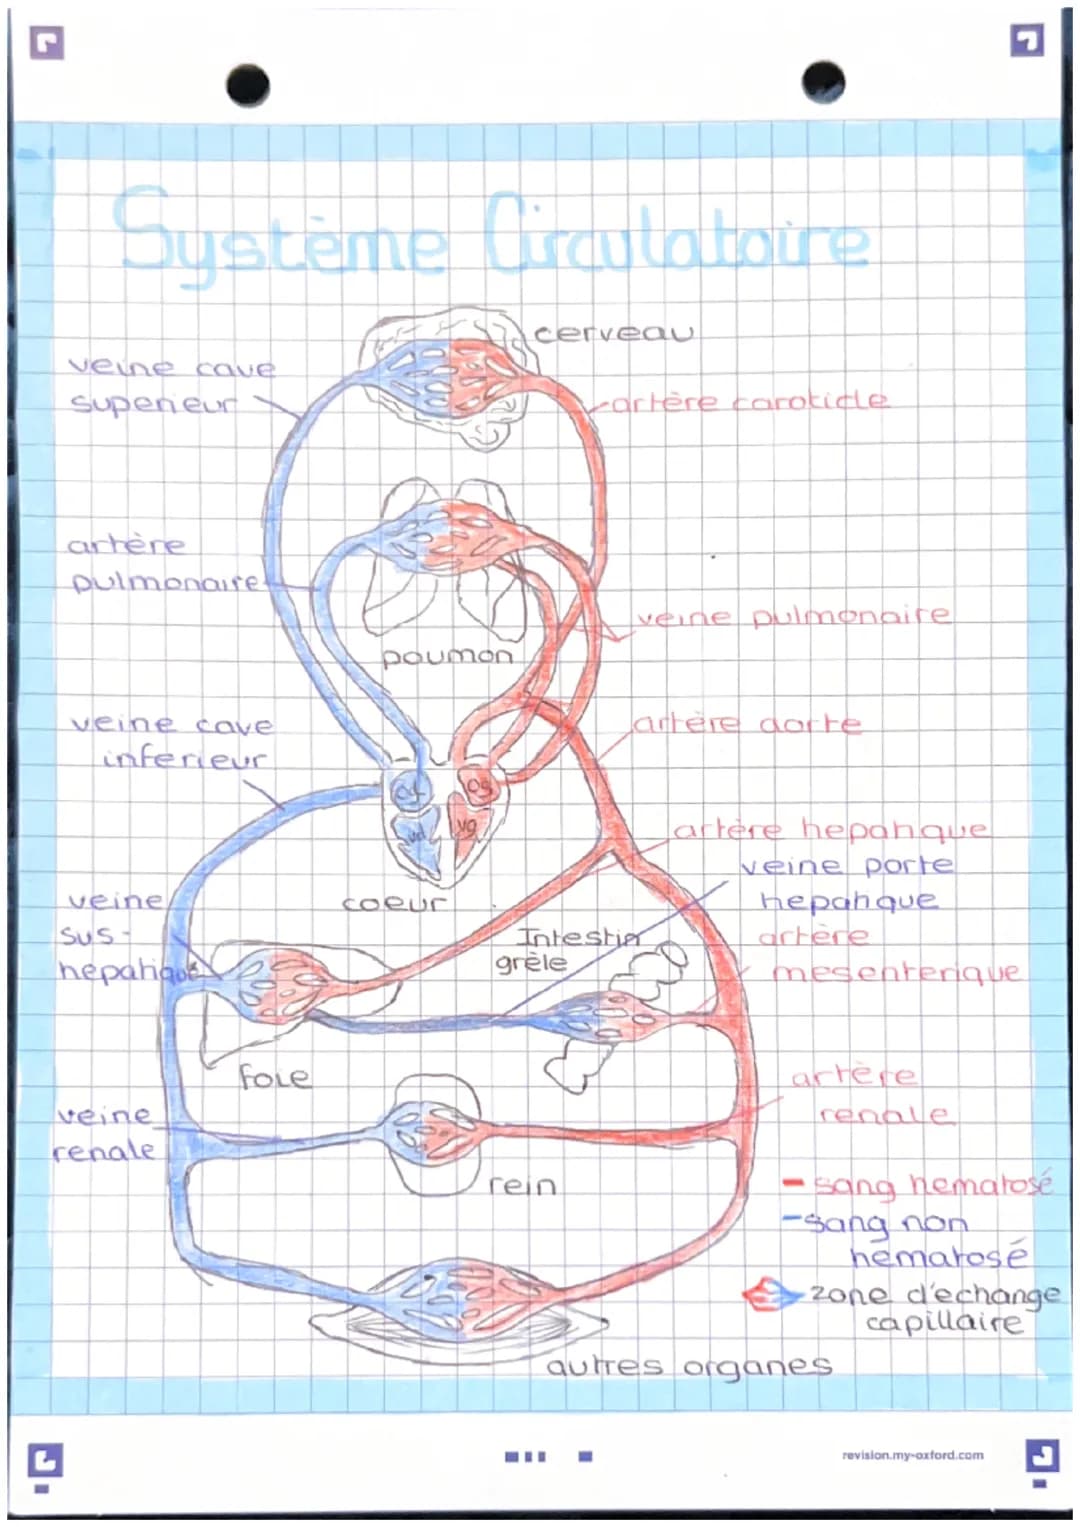 Système Circulatoire
cerveau
veine cave
superieur
artère carotide
artère
pulmonaire
veine pulmonaire
poumon
veine cave
inferieur
artère aorte
od
og
vd
vg
artère hepatique
veine porte
hepatique
coeur
veine
sus-
hepatique
Intestin
grèle
artère
mesenterique
foie
artère
renale
veine
renale
rein
sang hematosé
sang non
hématosé
zone d'echange
capillaire
autres organes
revision.my-oxford.com